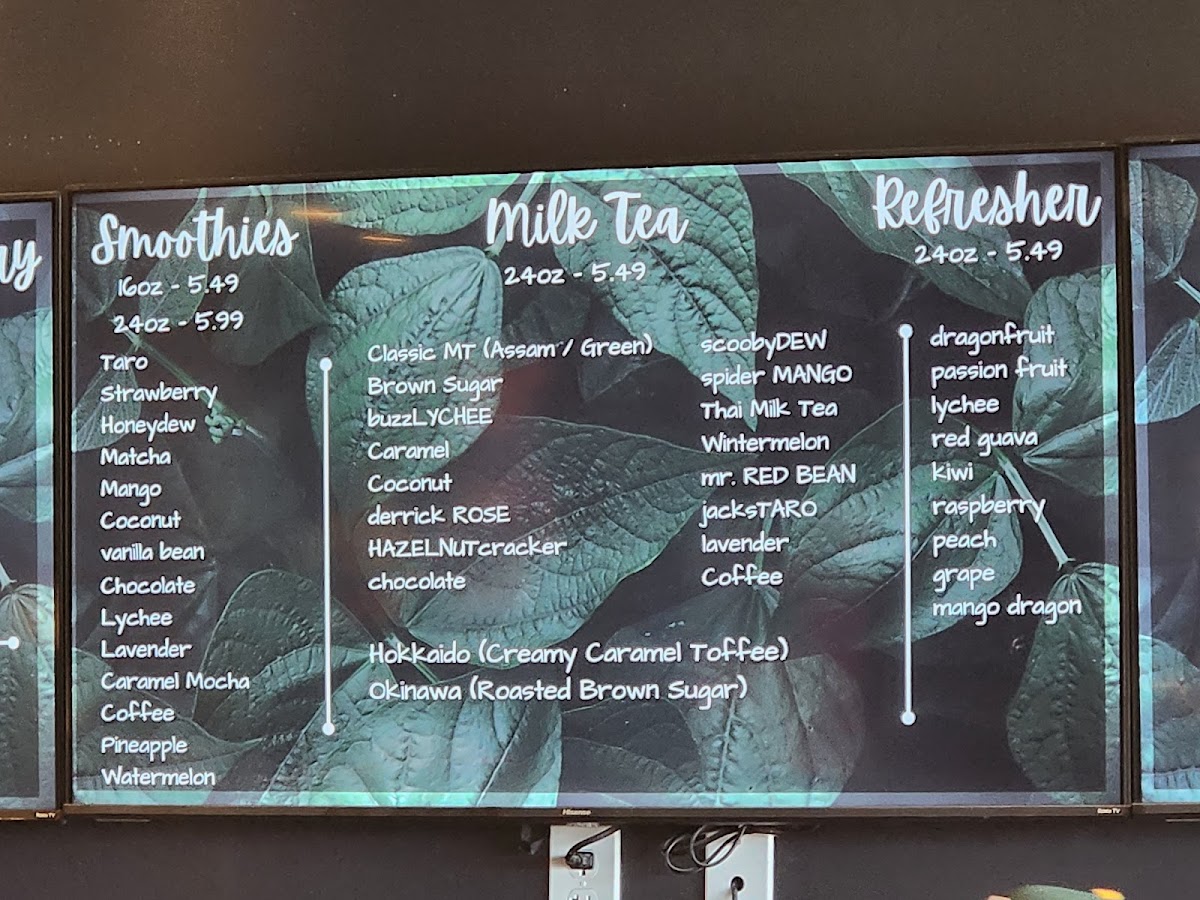 ay
Smoothies
16oz - 5.49
24oz - 5.99
Taro
Strawberry
Honeydew
Matcha
Mango
Coconut
vanilla bean
Chocolate
Lychee
Lavender
Caramel Mocha
Coffee
Pineapple
Watermelon
Milk Tea
24oz - 5.49
Classic MT (Assam / Green)
Brown Sugar
buzzLYCHEE
Caramel
Coconut
derrick ROSE
HAZELNUTcracker
chocolate
scoobyDEW
spider MANGO
Thai Milk Tea
Wintermelon
mr. RED BEAN
jacksTARO
lavender
Coffee
Hokkaido (Creamy Caramel Toffee)
Okinawa (Roasted Brown Sugar)
Refresher
24oz - 5.49
dragonfruit
passion fruit
lychee
red guava
kiwi
raspberry
peach
grape
mango dragon
Roku TV
Hisense
Roku TV